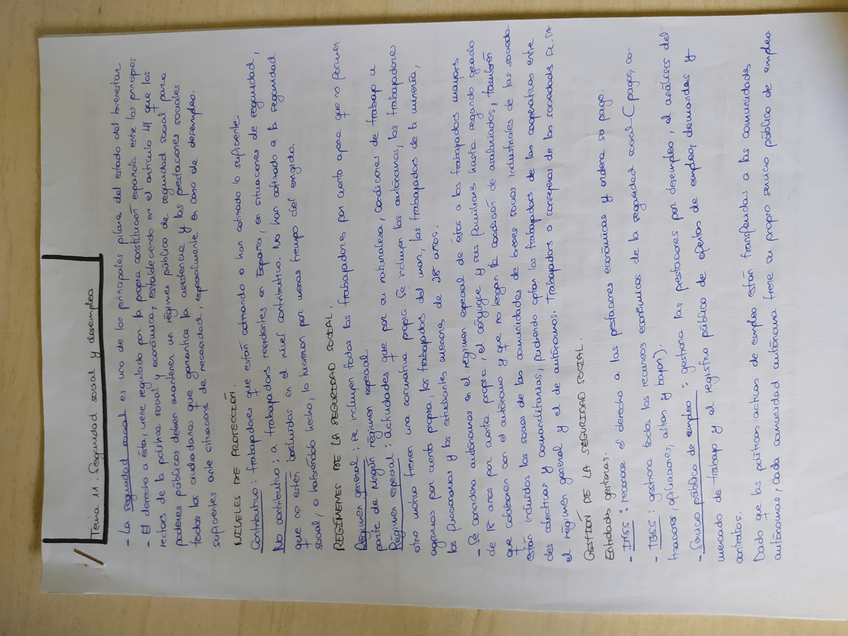 Tema 11. Seguridad social y desempleo
- La seguridad social es uno de los principales pilares del estado del bienestar.
- El derecho a ésta, viene regulado por la propia constitución española entre los principios
rectores de la política social y económica, estableciendo en el artículo 41 que los
poderes públicos deben mantener un régimen público de seguridad social para
todos los ciudadanos que garantice la asistencia y las prestaciones sociales
suficientes ante situaciones de necesidad, especialmente en caso de desempleo.
NIVELES DE PROTECCIÓN.
Contributivo: trabajadores que están cotizando o han cotizado lo suficiente.
No contributivo: a trabajadores residentes en España, en situaciones de seguridad,
que no estén incluidas en el nivel contributivo. No han cotizado a la seguridad
social, o habiéndolo hecho, lo hicieron por menos tiempo del exigido.
REGÍMENES DE LA SEGURIDAD SOCIAL.
Régimen general: se incluyen todos los trabajadores por cuenta ajena que no formen
parte de ningún régimen especial.
Régimen especial: actividades que por su naturaleza, condiciones de trabajo u
otro motivo tienen una normativa propia. Se incluyen los autónomos, los trabajadores
agrarios por cuenta propia, los trabajadores del mar, los trabajadores de la minería,
los funcionarios y los estudiantes menores de 28 años.
- Se considera autónomos en el régimen especial de éstos a los trabajadores mayores
de 18 años por cuenta propia, el cónyuge y sus familiares hasta segundo grado
que colaboren con el autónomo y que no tengan la condición de asalariados, también
están incluidos los socios de las comunidades de bienes, socios industriales de las socieda-
des colectivas y comanditarias, pudiendo optar los trabajadores de las cooperativas entre
el régimen general y el de autónomos. Trabajadores o consejeros de las sociedades
GESTIÓN DE LA SEGURIDAD SOCIAL.
Entidades gestoras:
- INSS: reconoce el derecho a las prestaciones económicas y ordena su pago.
- TGSS: gestiona todos los recursos económicos de la seguridad social (pagos, co-
tizaciones, afiliaciones, altas y bajas).
- Servicio público de empleo: gestiona las prestaciones por desempleo, el análisis del
mercado de trabajo y el registro público de ofertas de empleo, demandas y
contratos.
Dado que las políticas activas de empleo están transferidas a las comunidades
autónomas, cada comunidad autónoma tiene su propio servicio público de empleo